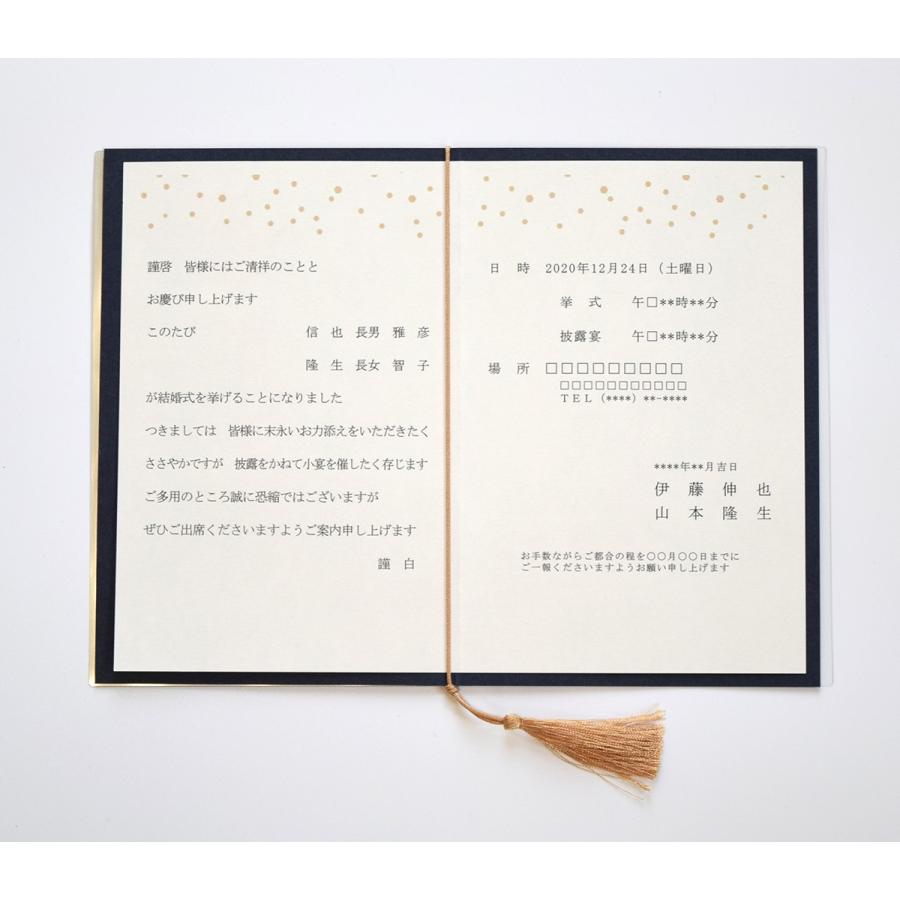 謹啓　皆様にはご清祥のことと
お慶び申し上げます
このたび　信　也　長男　雅　彦
隆　生　長女　智　子
が結婚式を挙げることになりました
つきましては　皆様に末永いお力添えをいただきたく
ささやかですが　披露をかねて小宴を催したく存じます
ご多用のところ誠に恐縮ではございますが
ぜひご出席くださいますようご案内申し上げます
謹　白
日　時　2020年12月24日（土曜日）
挙　式　午□**時**分
披露宴　午□**時**分
場　所　□□□□□□□□□
□□□□□□□□□□□
ＴＥＬ（****）**-****
****年**月吉日
伊　藤　伸　也
山　本　隆　生
お手数ながらご都合の程を〇〇月〇〇日までに
ご一報くださいますようお願い申し上げます